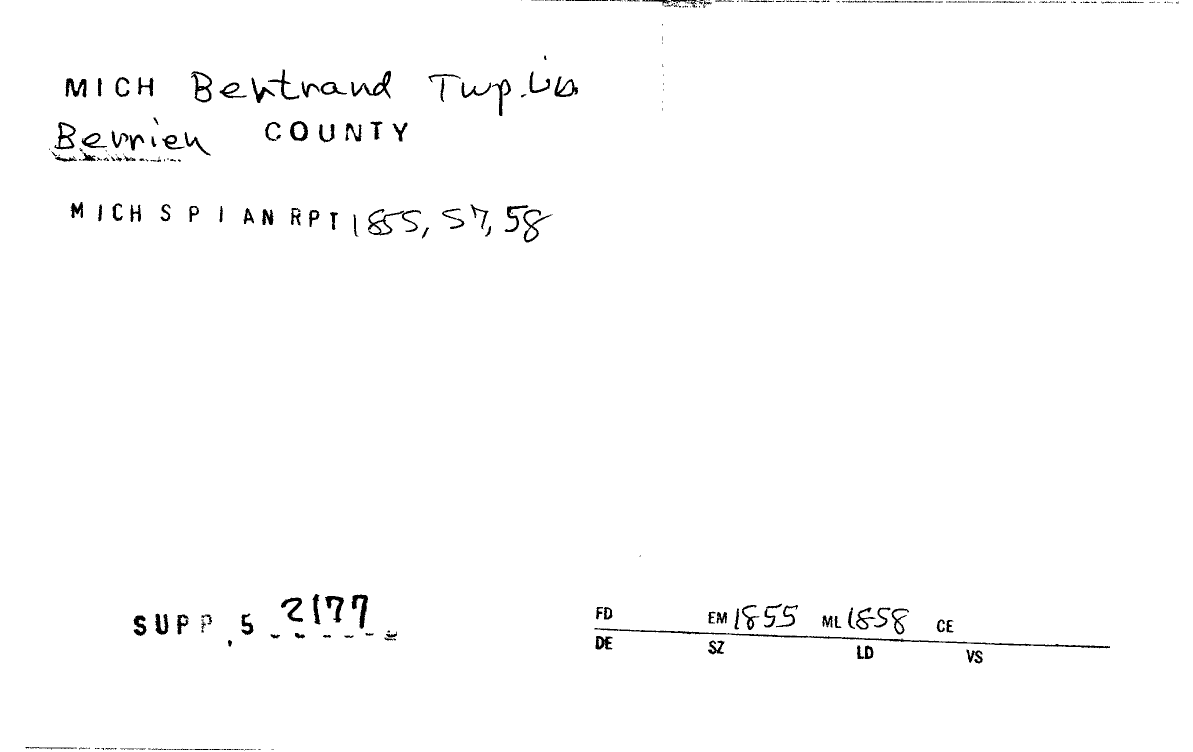 MICH Bertrand Twp. Lib
Berrien COUNTY
MICH S P I AN RPT 1855, 57, 58
SUPP. 5 2177
FD EM 1855 ML 1858 CE
DE SZ LD VS